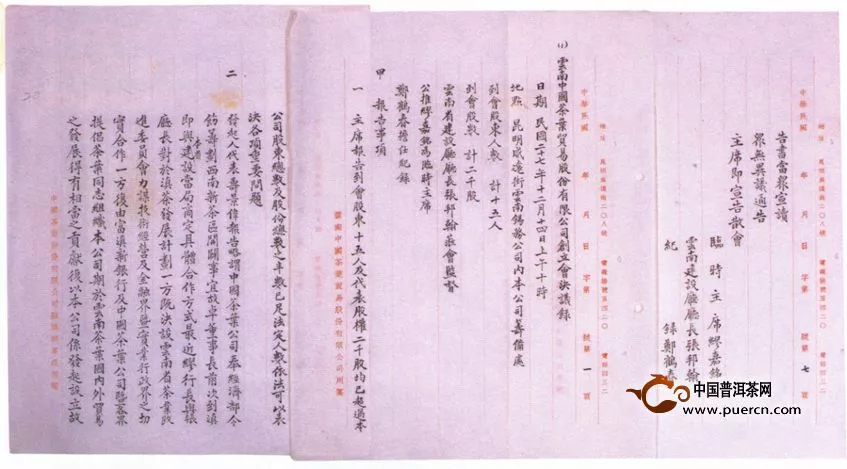 中華民國 年 月 日 字第 號第 七 頁
告書當眾宣讀
眾無異議通告
主席即宣告散會
臨時主席繆嘉銘
雲南建設廳廳長張邦翰
紀 錄 鄭鶴春
中華民國 年 月 日 字第 號第 一 頁
(1) 雲南中國茶葉貿易股份有限公司創立會決議錄
日期 民國二十七年十二月十四日上午十時
地點 昆明威遠街雲南錫務公司內本公司籌備處
到會股東人數 計十五人
到會股數 計二千股
雲南省建設廳廳長張邦翰蒞會監督
公推繆嘉銘為臨時主席
鄭鶴春擔任紀錄
甲 報告事項
一 主席報告到會股東十五人及代表股權二千股均已超過本
雲南中國茶葉貿易股份有限公司用箋
公司股東總數及股份總數之半數已足法定人數依法可以表
決各項重要問題
二 發起人代表壽景偉報告略謂中國茶葉公司奉經濟部令
飭籌劃西南新茶區開闢事宜故卓董事長前次到滇
即與本省建設當局商定具體合作方式最近繆行長與張
廳長對於滇茶發展計劃一方既決設雲南省茶業改
進委員會力謀技術經營及金融界暨實業行政界之切
實合作一方復由富滇新銀行及中國茶葉公司暨各界
提倡茶葉同志組織本公司期於雲南茶葉國內外貿易
之發展得有相當之貢獻後以本公司係發起設立故
中国普洱茶网
www.puercn.com